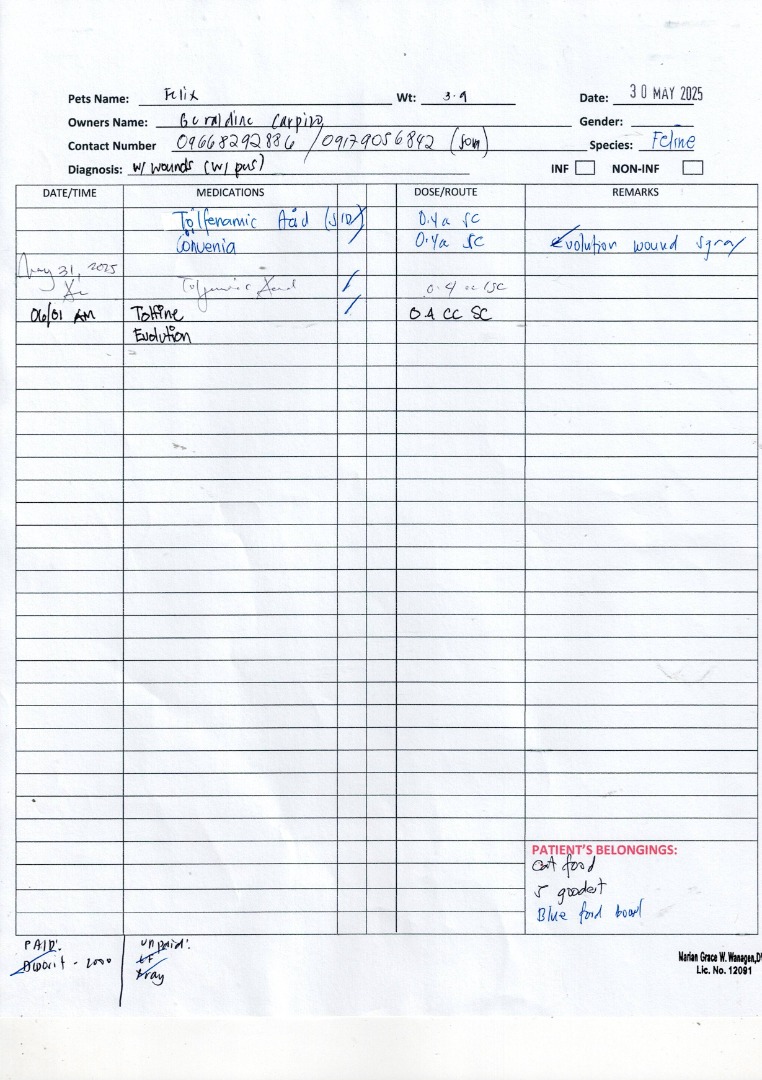 Pets Name: Felix Wt: 3.9 Date: 30 MAY 2025
Owners Name: Geraldine Gender:
Contact Number 09668292886 / 09179056842 (son) Species: Feline
Diagnosis: w/ wounds (w/ pus) INF NON-INF
DATE/TIME MEDICATIONS DOSE/ROUTE REMARKS
Tolfenamic Acid (SID) 0.4cc SC
Convenia 0.4cc SC Evolution wound spray
May 31, 2025
Tolfenamic Acid 0.4 cc SC
06/01 AM Tolfine 0.4 CC SC
Evolution
PATIENT'S BELONGINGS:
cat food
5 goodest
Blue food bowl
PAID: Unpaid:
- 2000
Marian Grace W. Wanagen,
Lic. No. 12091